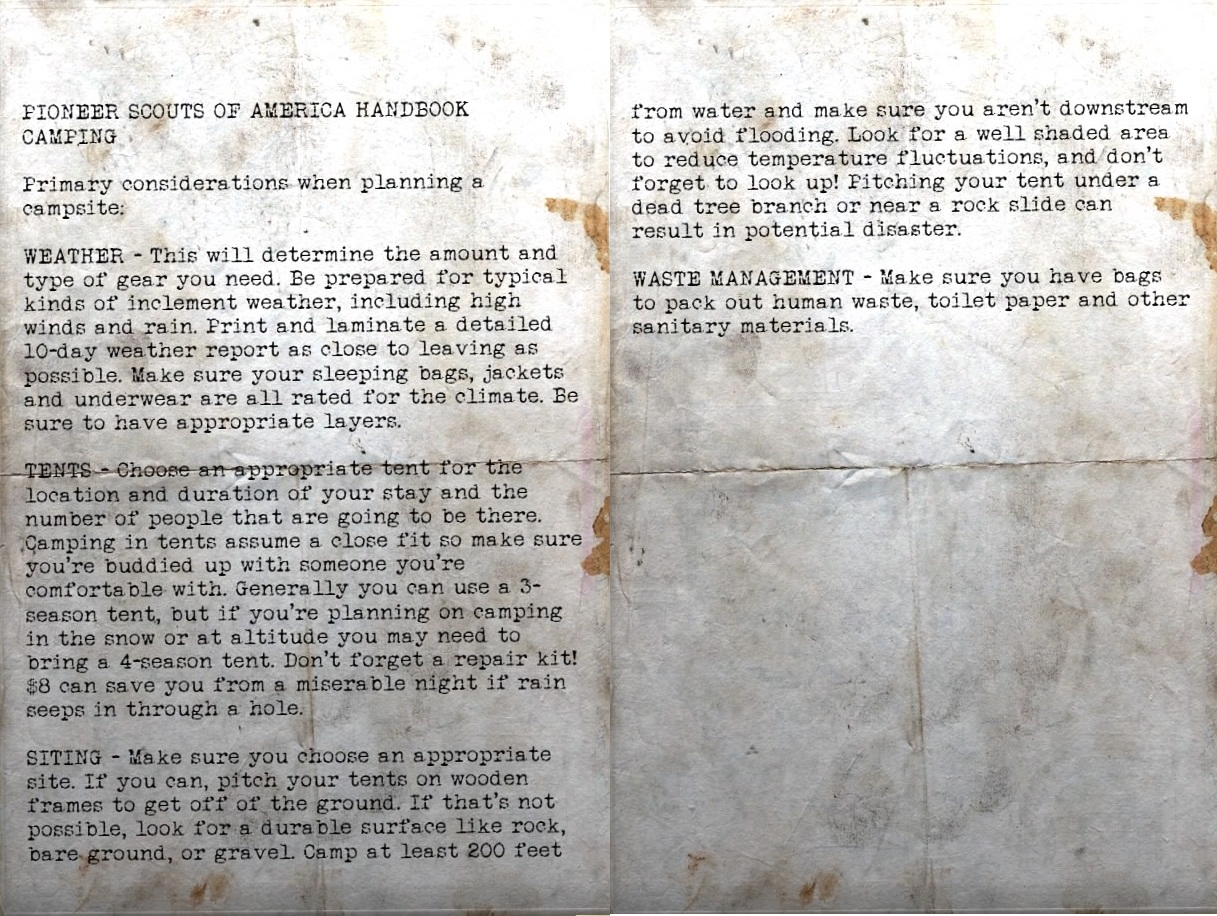 PIONEER SCOUTS OF AMERICA HANDBOOK
CAMPING
Primary considerations when planning a
campsite:
WEATHER - This will determine the amount and
type of gear you need. Be prepared for typical
kinds of inclement weather, including high
winds and rain. Print and laminate a detailed
10-day weather report as close to leaving as
possible. Make sure your sleeping bags, jackets
and underwear are all rated for the climate. Be
sure to have appropriate layers.
TENTS - Choose an appropriate tent for the
location and duration of your stay and the
number of people that are going to be there.
Camping in tents assume a close fit so make sure
you're buddied up with someone you're
comfortable with. Generally you can use a 3-
season tent, but if you're planning on camping
in the snow or at altitude you may need to
bring a 4-season tent. Don't forget a repair kit!
$8 can save you from a miserable night if rain
seeps in through a hole.
SITING - Make sure you choose an appropriate
site. If you can, pitch your tents on wooden
frames to get off of the ground. If that's not
possible, look for a durable surface like rock,
bare ground, or gravel. Camp at least 200 feet
from water and make sure you aren't downstream
to avoid flooding. Look for a well shaded area
to reduce temperature fluctuations, and don't
forget to look up! Pitching your tent under a
dead tree branch or near a rock slide can
result in potential disaster.
WASTE MANAGEMENT - Make sure you have bags
to pack out human waste, toilet paper and other
sanitary materials.